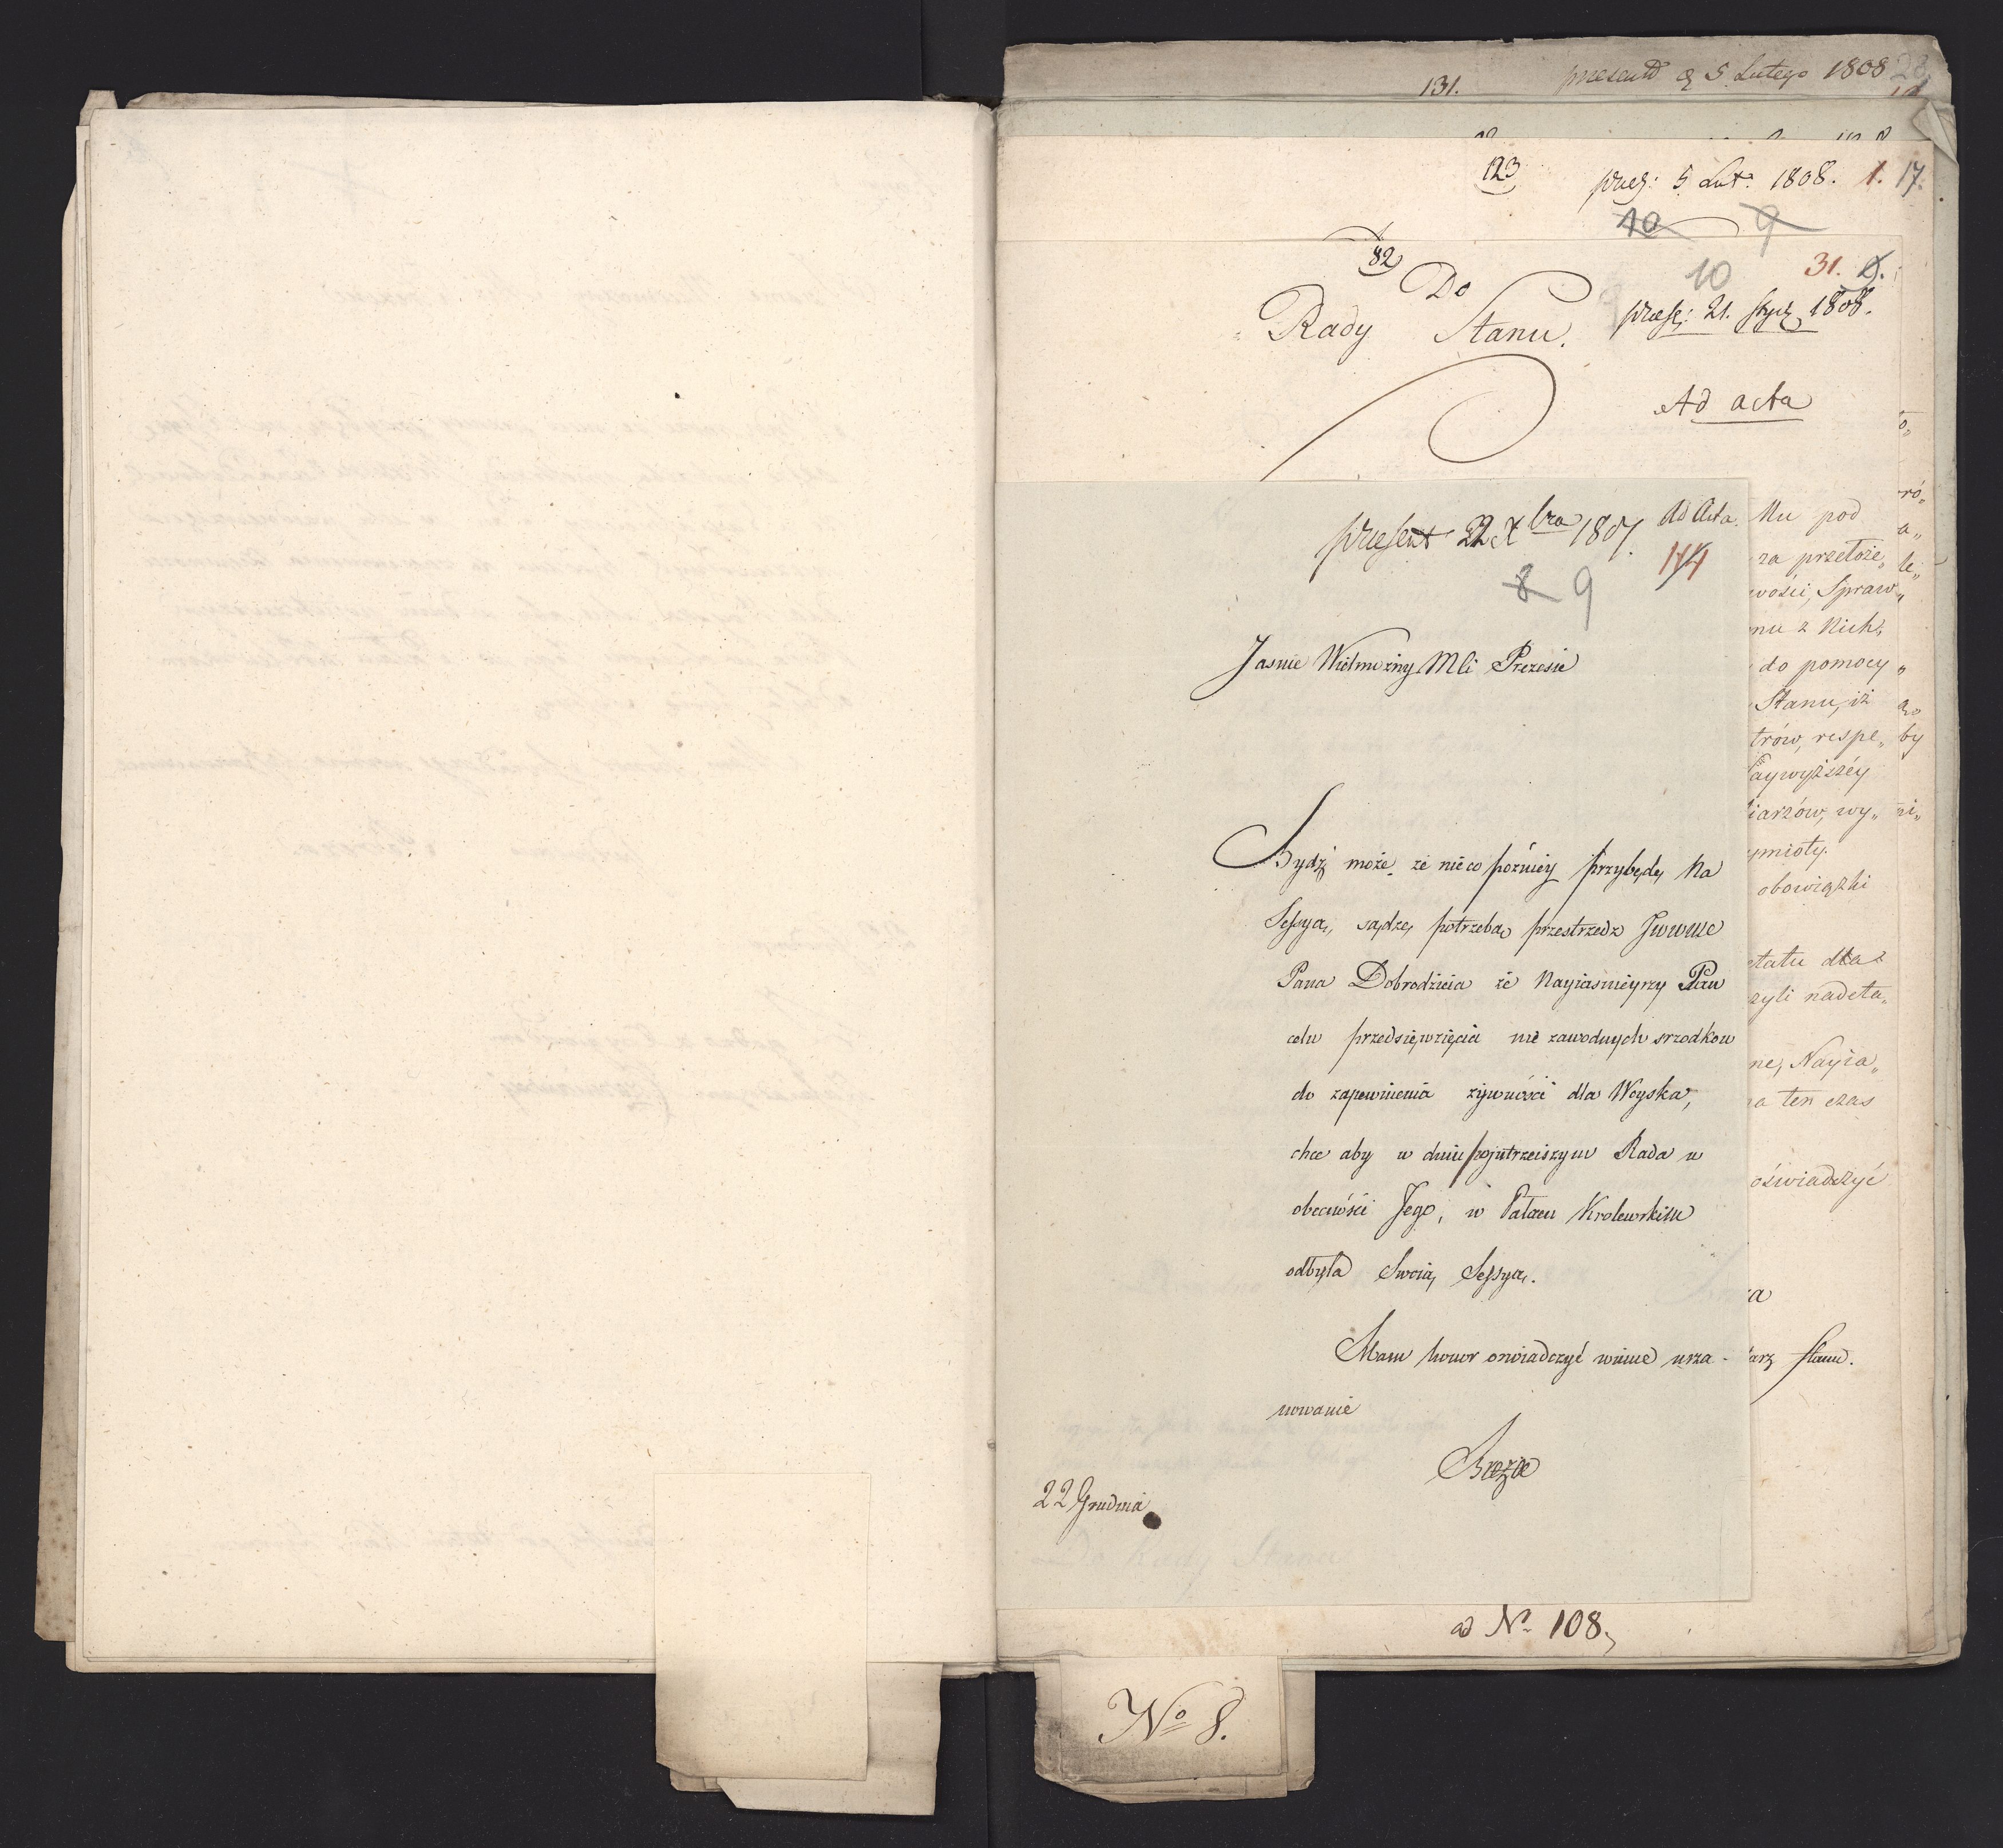 131. 5 Lutego 1808
123 5 Lut. 1808. 1. 17.
10 9
82 10 31.
Do
Rady Stanu. 21. 1808.
Ad acta
Ad Acta.
præsent 22 Xbra 1807.
8 9
Jasnie Wielmożny Mci Prezesie
Bydź może że nieco późniey przybędę na
Sessyą, sądzę potrzebą przestrzedz
Pana Dobrodzieia że Nayiasnieyszy Pan
celu przedsięwzięcia nie zawodnych srzodkow
do zapewnienia żywności dla Woyska,
chce aby w dniu pojutrzeiszym Rada w
obecności Jego, w Pałacu Krolewskim
odbyła Swoią Sessyą.
Mam honor oswiadczyć winne usza-
nowanie
Breza
22 Grudnia
Mu pod
za przełoże„
wości, Spraw„
nu z Nich,
do pomocy
Stanu, iż
trów, respe„
aywyższéy
iarzów, wy„
ymioty.
obowiązki
etatu dla
zyli nadeta„
ne, Nayia„
a ten czas
oświadczyć
a
arz Stanu.
ró„
a„
le„
by
ni„
ad No 108.
No 8.